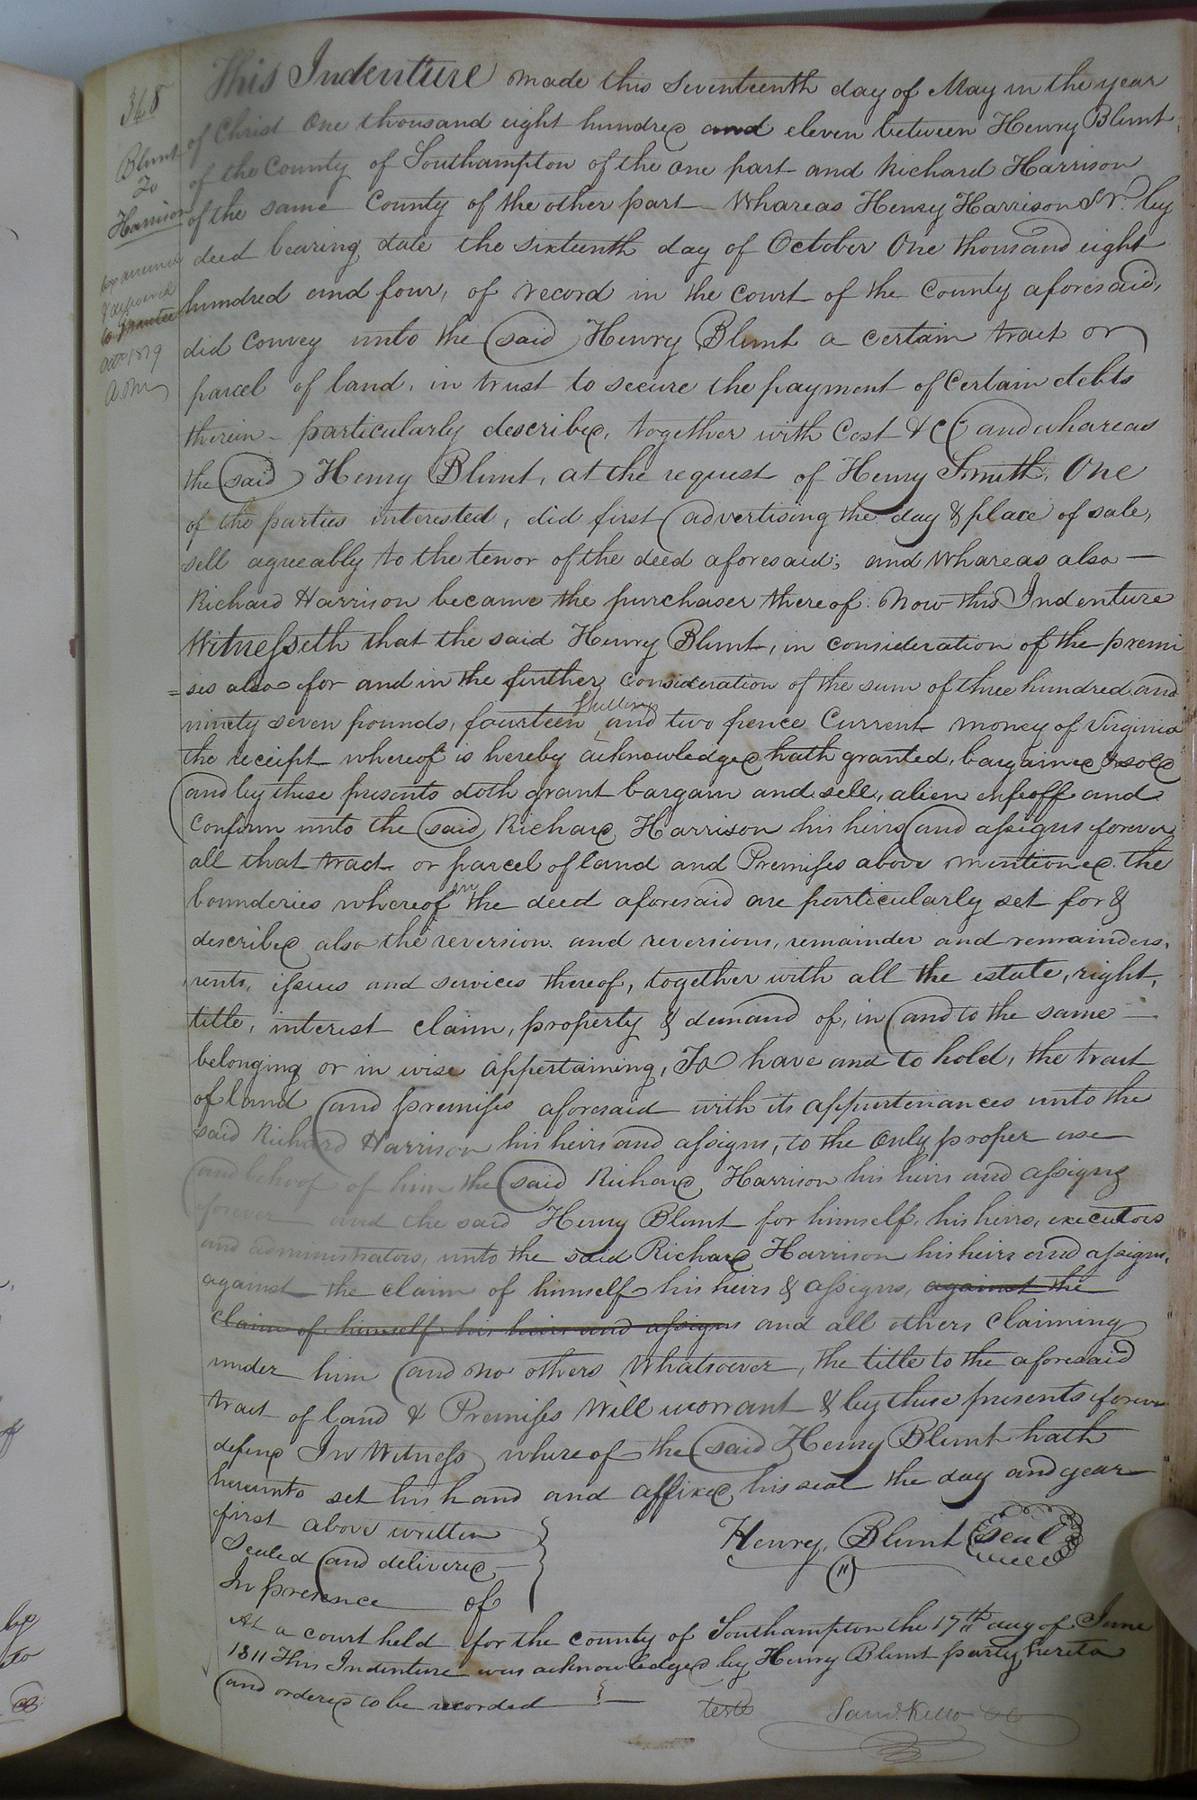 348
Blunt
To
Harrison
Examined
& delivered
to Grantee
1819
This Indenture made this Seventeenth day of May in the year
of Christ One thousand eight hundred and eleven between Henry Blunt
of the County of Southampton of the one part and Richard Harrison
of the same County of the other part Whareas Henry Harrison Sr. by
deed bearing date the sixteenth day of October One thousand eight
hundred and four, of record in the court of the County aforesaid,
did convey unto the said Henry Blunt a certain tract or
parcel of land, in trust to secure the payment of Certain debts
therein particularly described, together with Cost &c and whareas
the said Henry Blunt, at the request of Henry Smith, One
of the parties interested, did first advertising the day & place of sale,
sell agreeably to the tenor of the deed aforesaid; and Whareas also —
Richard Harrison became the purchaser thereof. Now this Indenture
Witnesseth that the said Henry Blunt, in consideration of the premi
=ses also for and in the further consideration of the sum of three hundred and
ninety seven pounds, fourteen shillings and two pence Current money of Virginia
the receipt whereof is hereby acknowledged hath granted, bargained & sold
and by these presents doth grant bargain and sell, alien enfeoff and
Confirm unto the said Richard Harrison his heirs and assigns forever
all that tract or parcel of land and Premises above mentioned. the
bounderies whereof in the deed aforesaid are particularly set for &
described also the reversion and reversions, remainder and remainders,
rents, issues and services thereof, together with all the estate, right,
title, interest claim, property & demand of, in and to the same —
belonging or in wise appertaining, To have and to hold, the tract
of land and premises aforesaid with its appurtenances unto the
said Richard Harrison his heirs and assigns, to the Only proper use
and behoof of him the said Richard Harrison his heirs and assigns
forever and the said Henry Blunt for himself, his heirs, executors
and administrators, unto the said Richard Harrison his heirs and assigns,
against the claim of himself his heirs & assigns, against the
claim of himself his heirs and assigns and all others claiming
under him and no others Whatsoever, the title to the aforesaid
tract of land & Premises Will warrant & by these presents forever
defend In Witness whereof the said Henry Blunt hath
hereunto set his hand and affixed his seal the day and year
first above written
Sealed and delivered
In presence of
Henry Blunt Seal
At a court held for the county of Southampton the 17th day of June
1811 This Indenture was acknowledged by Henry Blunt party hereto
and ordered to be recorded
teste Saml. Kello CC